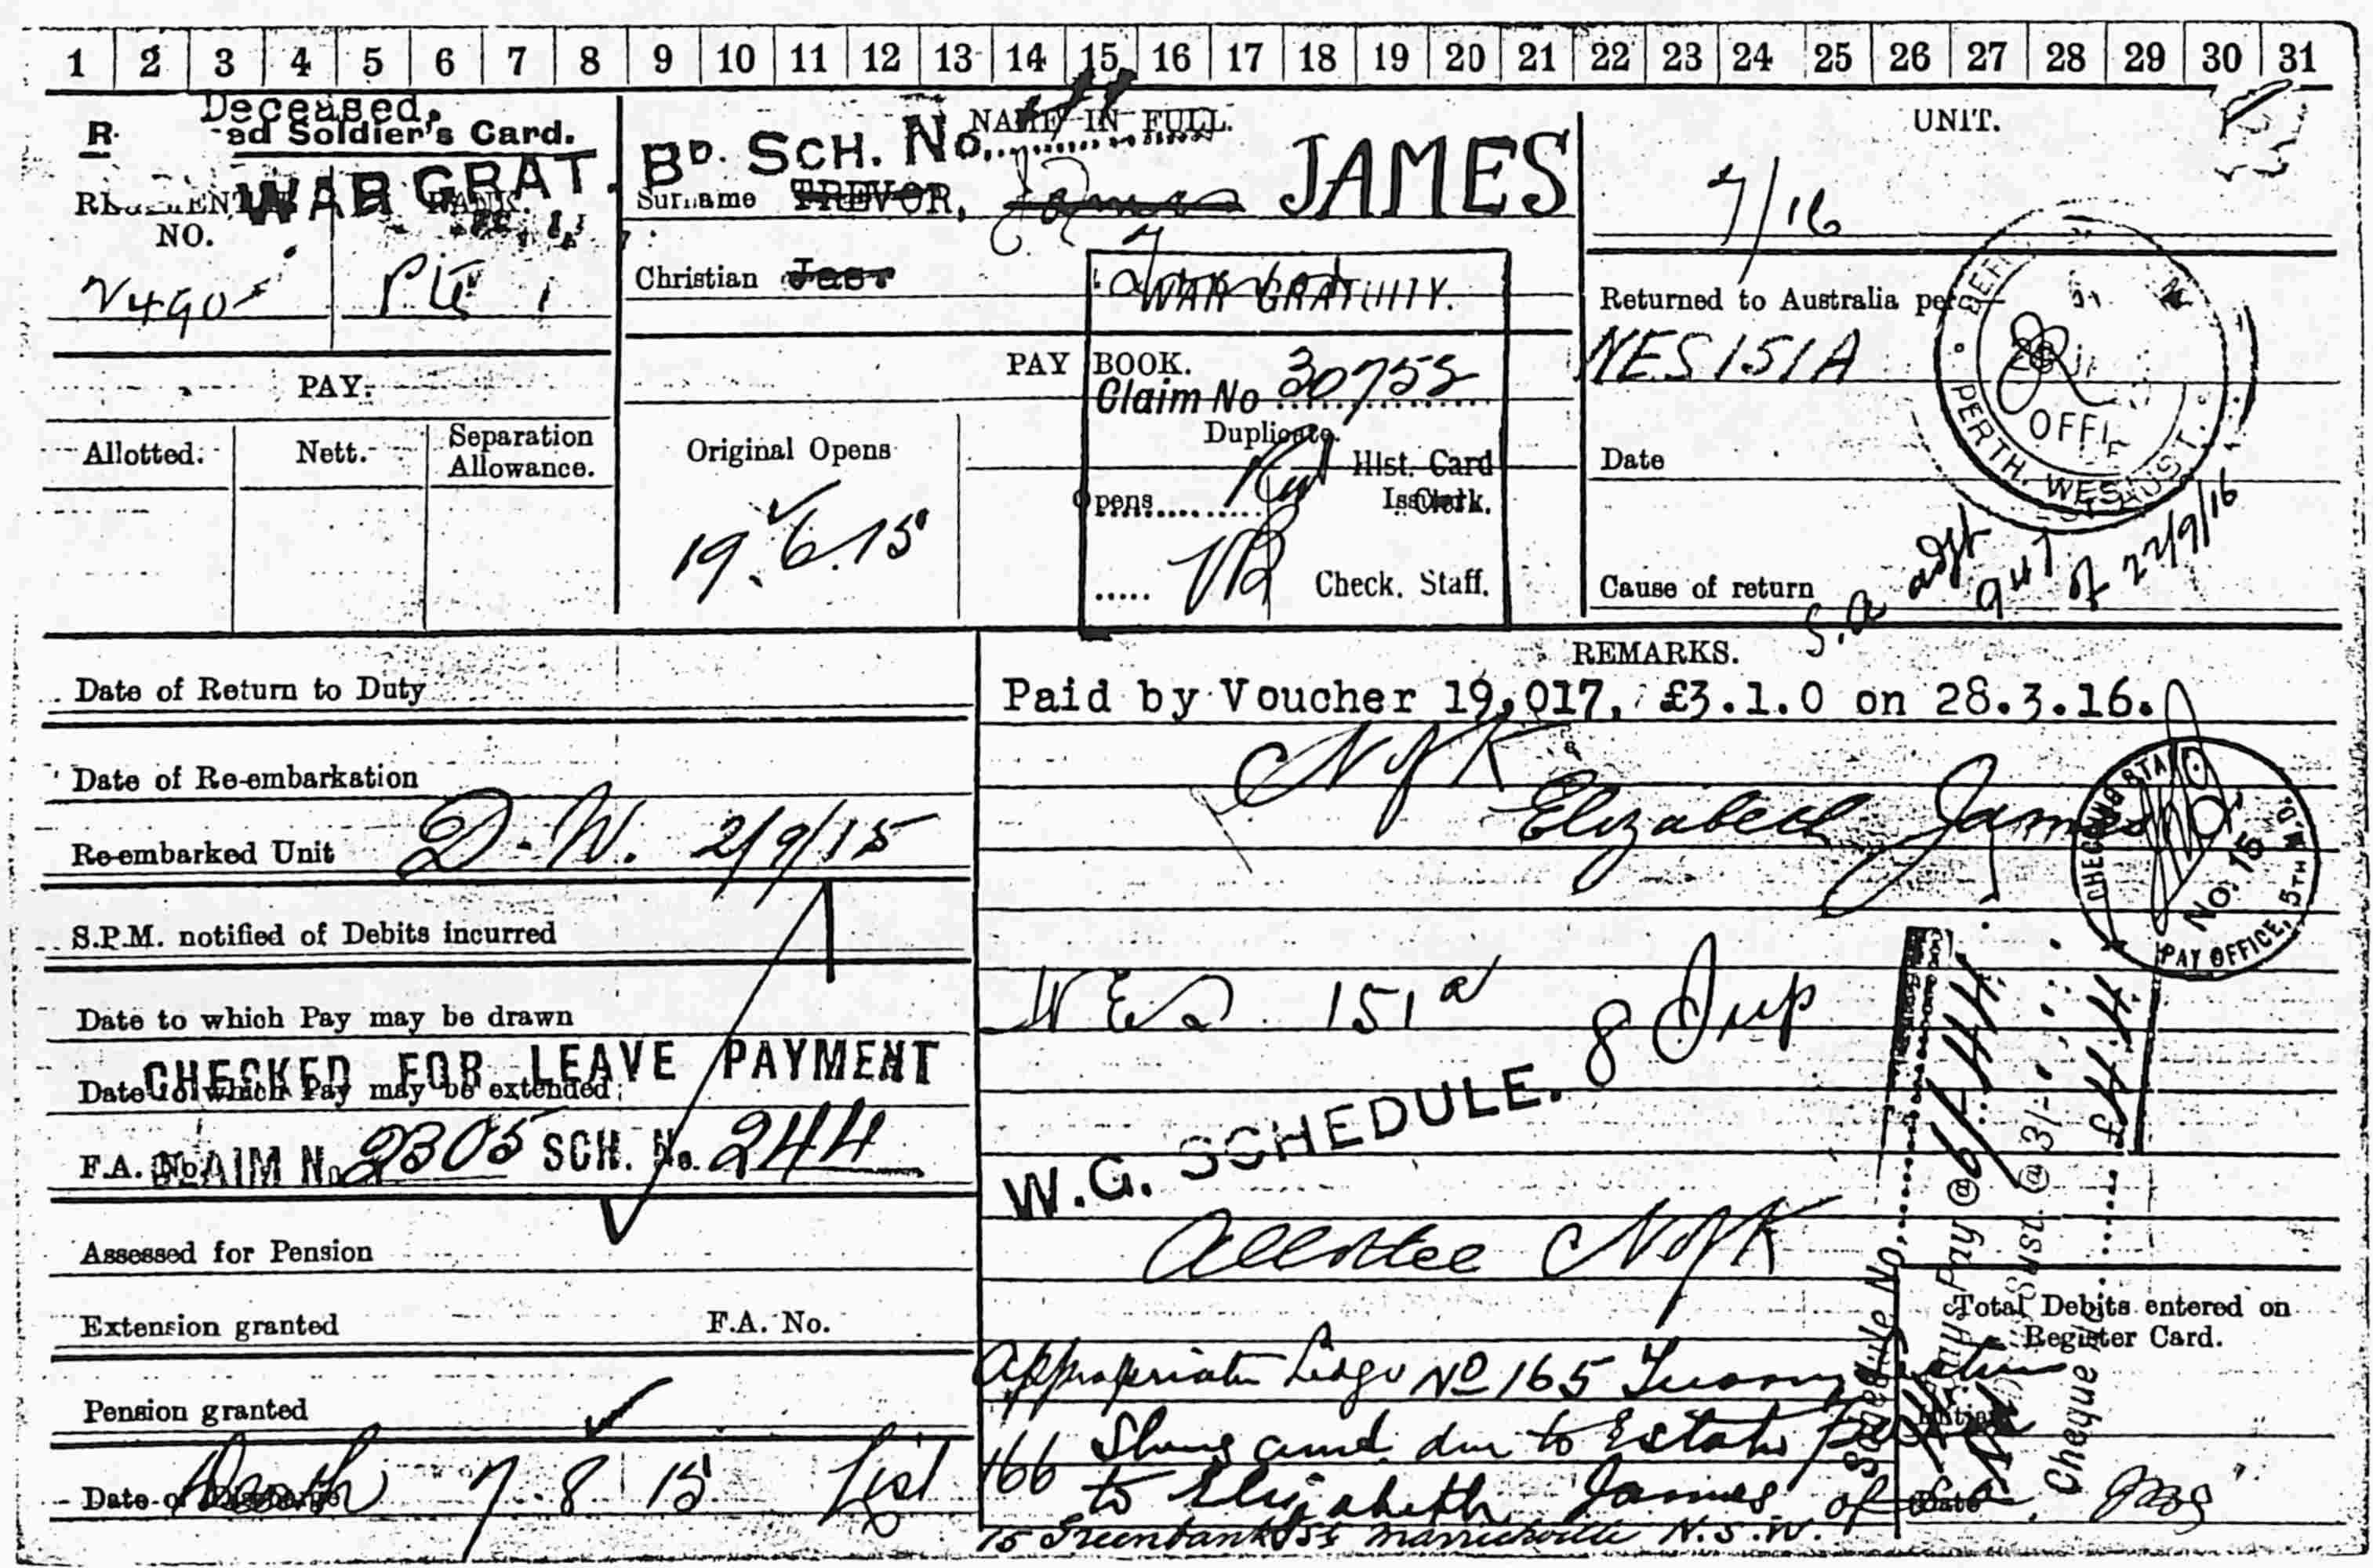 1 2 3 4 5 6 7 8 9 10 11 12 13 14 15 16 17 18 19 20 21 22 23 24 25 26 27 28 29 30 31
Deceased.
R ad Soldier's Card.
WAR GRAT.
NO.
2490 Pte
PAY.
Allotted. Nett. Separation Allowance.
NAME IN FULL.
BD. SCH. No.
Surname TREVOR, James JAMES
Christian Jas.
WAR GRATUITY.
PAY BOOK.
Claim No 30755
Duplicate.
Original Opens
Hist. Card
Opens Clerk.
19.6.15
Check. Staff.
UNIT.
7/16
Returned to Australia per
NES 151A
PERTH. WEST AUST.
OFFI
Date
Cause of return
S.A adjt 947 of 22/9/16
Date of Return to Duty
Date of Re-embarkation
Re-embarked Unit D.W. 2/9/15
S.P.M. notified of Debits incurred
Date to which Pay may be drawn
CHECKED FOR LEAVE PAYMENT
Date to which Pay may be extended
F.A. No.
CLAIM No. 2305 SCH. No. 244
Assessed for Pension
Extension granted F.A. No.
Pension granted
Date of Death 7-8 15 List 166
REMARKS.
Paid by Voucher 19,017, £3.1.0 on 28.3.16.
N of K
Elizabeth James
CHECKING STAFF No. 15 PAY OFFICE, 5TH M.D.
NES 151a
8 Dup
W.G. SCHEDULE.
Allottee N of K
Schedule No.
Days Pay @ 6/-
Sust. @ 3/-
Cheque
Total Debits entered on Register Card.
Initials
Date
Ledger No 165
amt due to Estate
to Elizabeth James of
15 Greenbank St Marrickville N.S.W.